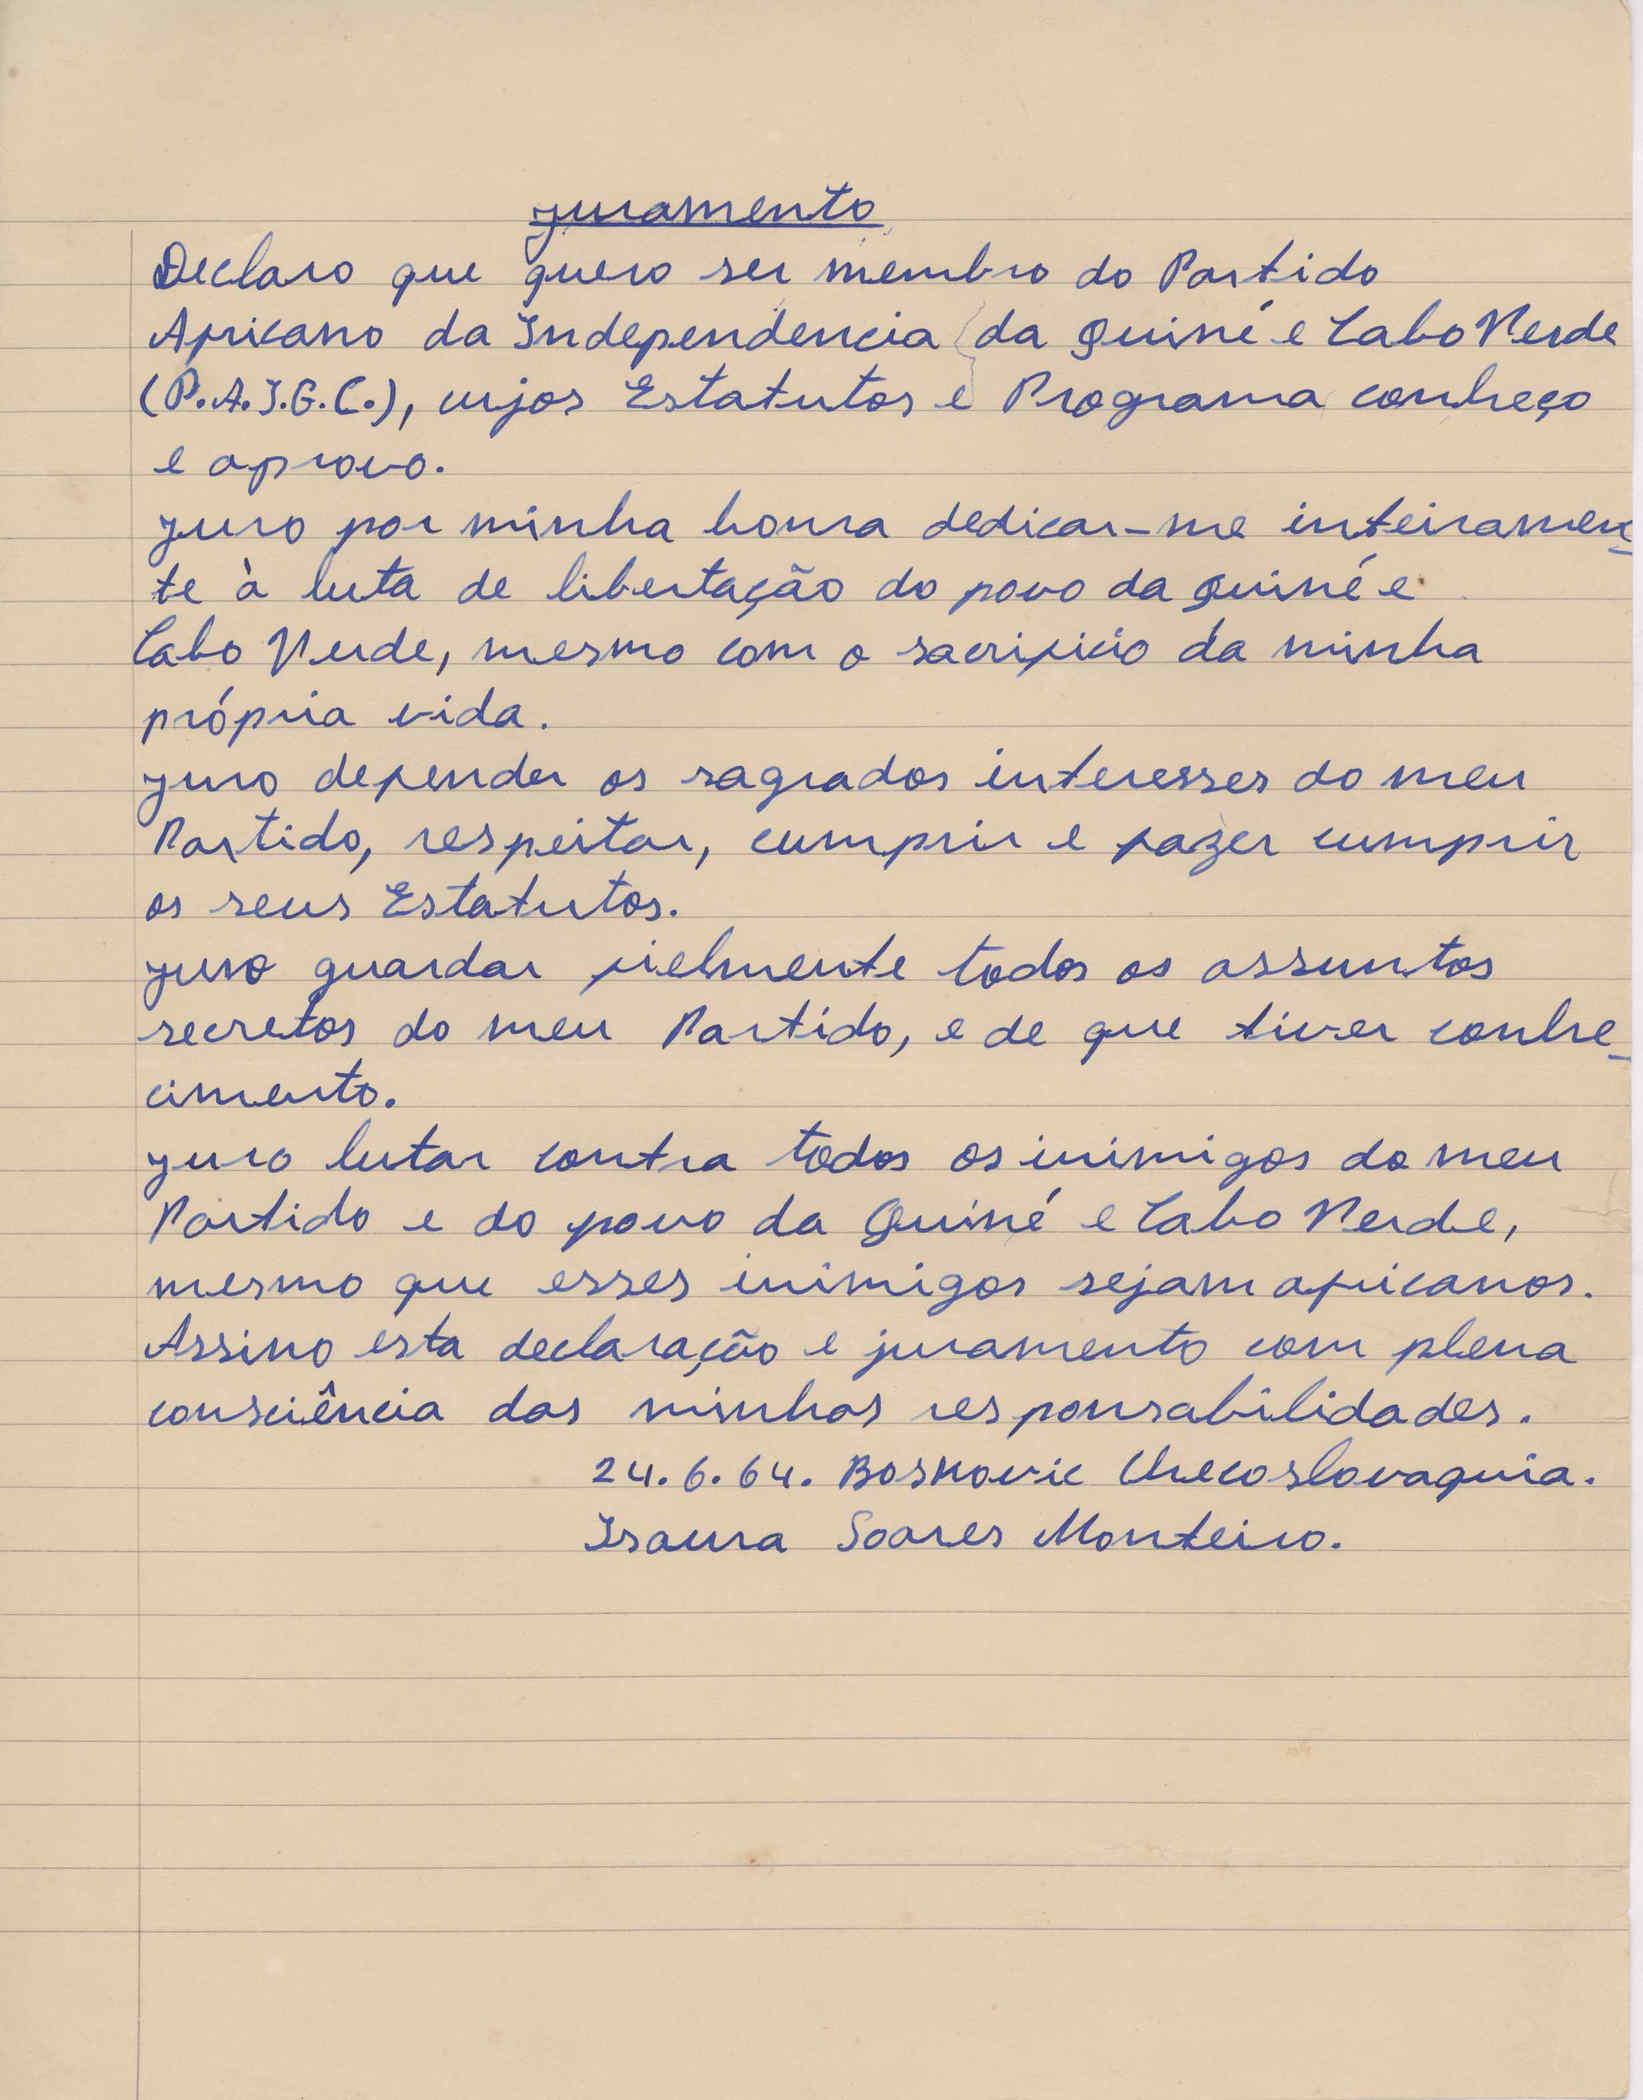 Juramento
Declaro que quero ser membro do Partido
Africano da Independencia da Guiné e Cabo Verde
(P.A.I.G.C.), cujos Estatutos e Programa conheço
e aprovo.
Juro por minha honra dedicar-me inteiramen-
te à luta de libertação do povo da Guiné e
Cabo Verde, mesmo com o sacrificio da minha
própria vida.
Juro defender os sagrados interesses do meu
Partido, respeitar, cumprir e fazer cumprir
os seus Estatutos.
Juro guardar fielmente todos os assuntos
secretos do meu Partido, e de que tiver conhe-
cimento.
Juro lutar contra todos os inimigos do meu
Partido e do povo da Guiné e Cabo Verde,
mesmo que esses inimigos sejam africanos.
Assino esta declaração e juramento com plena
consciência das minhas responsabilidades.
24.6.64. Boskovic Checoslovaquia.
Isaura Soares Monteiro.